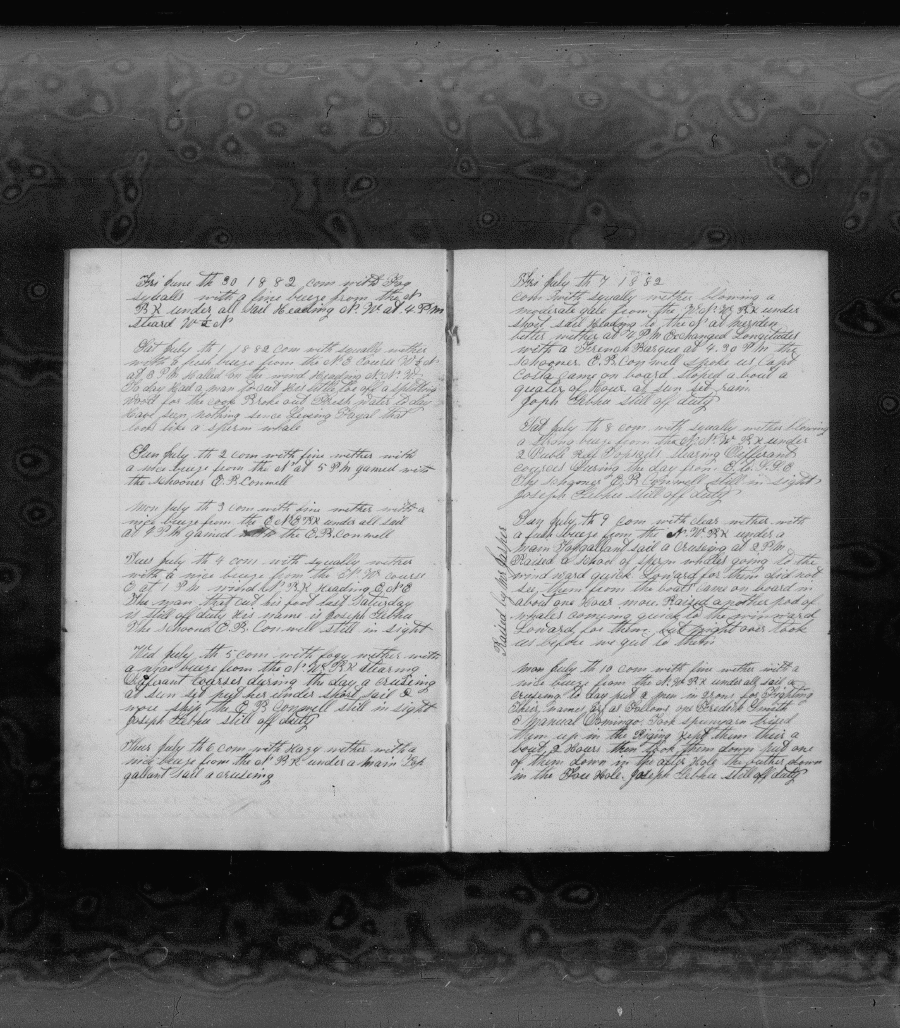 Fri June th 30 1882 com with Fog
squalls with a fine breeze from the N
B K under all Sail Heading N. W at 4 P m
Steard W ½ N
Sat July th 1 1882 com with squally wether
with a fresh breeze from the N E Course W ½ N
at 3 P m Halled on the wind Heading N. N. W.
To day Had a man to cut His off a splitting
wood for the cook Broke out Fresh water to day
have seen nothing since leving Fayal that
looks like a sperm whale
Sun July th 2 com with fine wether with
a nice breeze from the N at 5 P m gamed with
the schooner E. B Conwell
Mon July th 3 com with fine wether with a
nice breeze from the E N E B K under all sail
at 4 P m gamed with the E. B. Conwell
Tues July th 4 com with squally wether
with a nice breeze from the N W course
E at 1 P m wind N B K Heading E N E
The man that cut his foot last Saturday
is still off duty His name is Joseph Sebhu
The schooner E. B. Conwell still in sight
Wed July th 5 com with fogy wether with
a nice breeze from the N W B K stearing
Diferant coarses during the day a crusing
at sun set put her under short sail &
wore ship the E B Conwell still in sight
Joseph Sebhu still off duty
Thur July th 6 com with Hazy wether with a
nice breeze from the N B K under a main Top
gallant sail a crusing
Fri July th 7 1882
com with squally wether blowing a
moderate gale from the W. N. W B K under
short sail Heading to the N at meriden
better wether at 4 P m Exchanged Longitudes
with a French Barque at 4.30 P m the
schooner E. B. Conwell Spoke us Capt
Costa Came on board stoped about a
quater of Hour at sun set rain
Joseph Sebhu still off duty
Sat July th 8 com with squally wether blowing
a strong breeze from the N. N. W B K under
2 Dubl Reef Topsails Stearing Differant
cources During the day from E. to S. S. E
The schooner E. B Conwell still in sight
Joseph Sebhu still off duty
Raised by Mr Jasper
Sun July th 9 com with clear wether with
a fresh breeze from the N. W B K under a
main Topgallant sail a Crusing at 2 P m
Raised a School of sperm whales going to the
wind ward quick Loward for them did not
see them from the boats came on board in
about one Hour more Raised another pod of
whales comeing quick to the win ward
Loward for them but night over took
us before we got to them
Mon July th 10 com with fine wether with a
nice breeze from the N. W B K under all sail a
crusing to day put 2 men in irons for Fighting
Their names are as Follows on Fredrik Smith
& Manual Domingo. Took spunyarn trised
them up in the Riging kept them their a
bout 2 Hours then took them down put one
of them down in the after Hole the buther down
in the Fore Hole. Joseph Sebhu still off duty